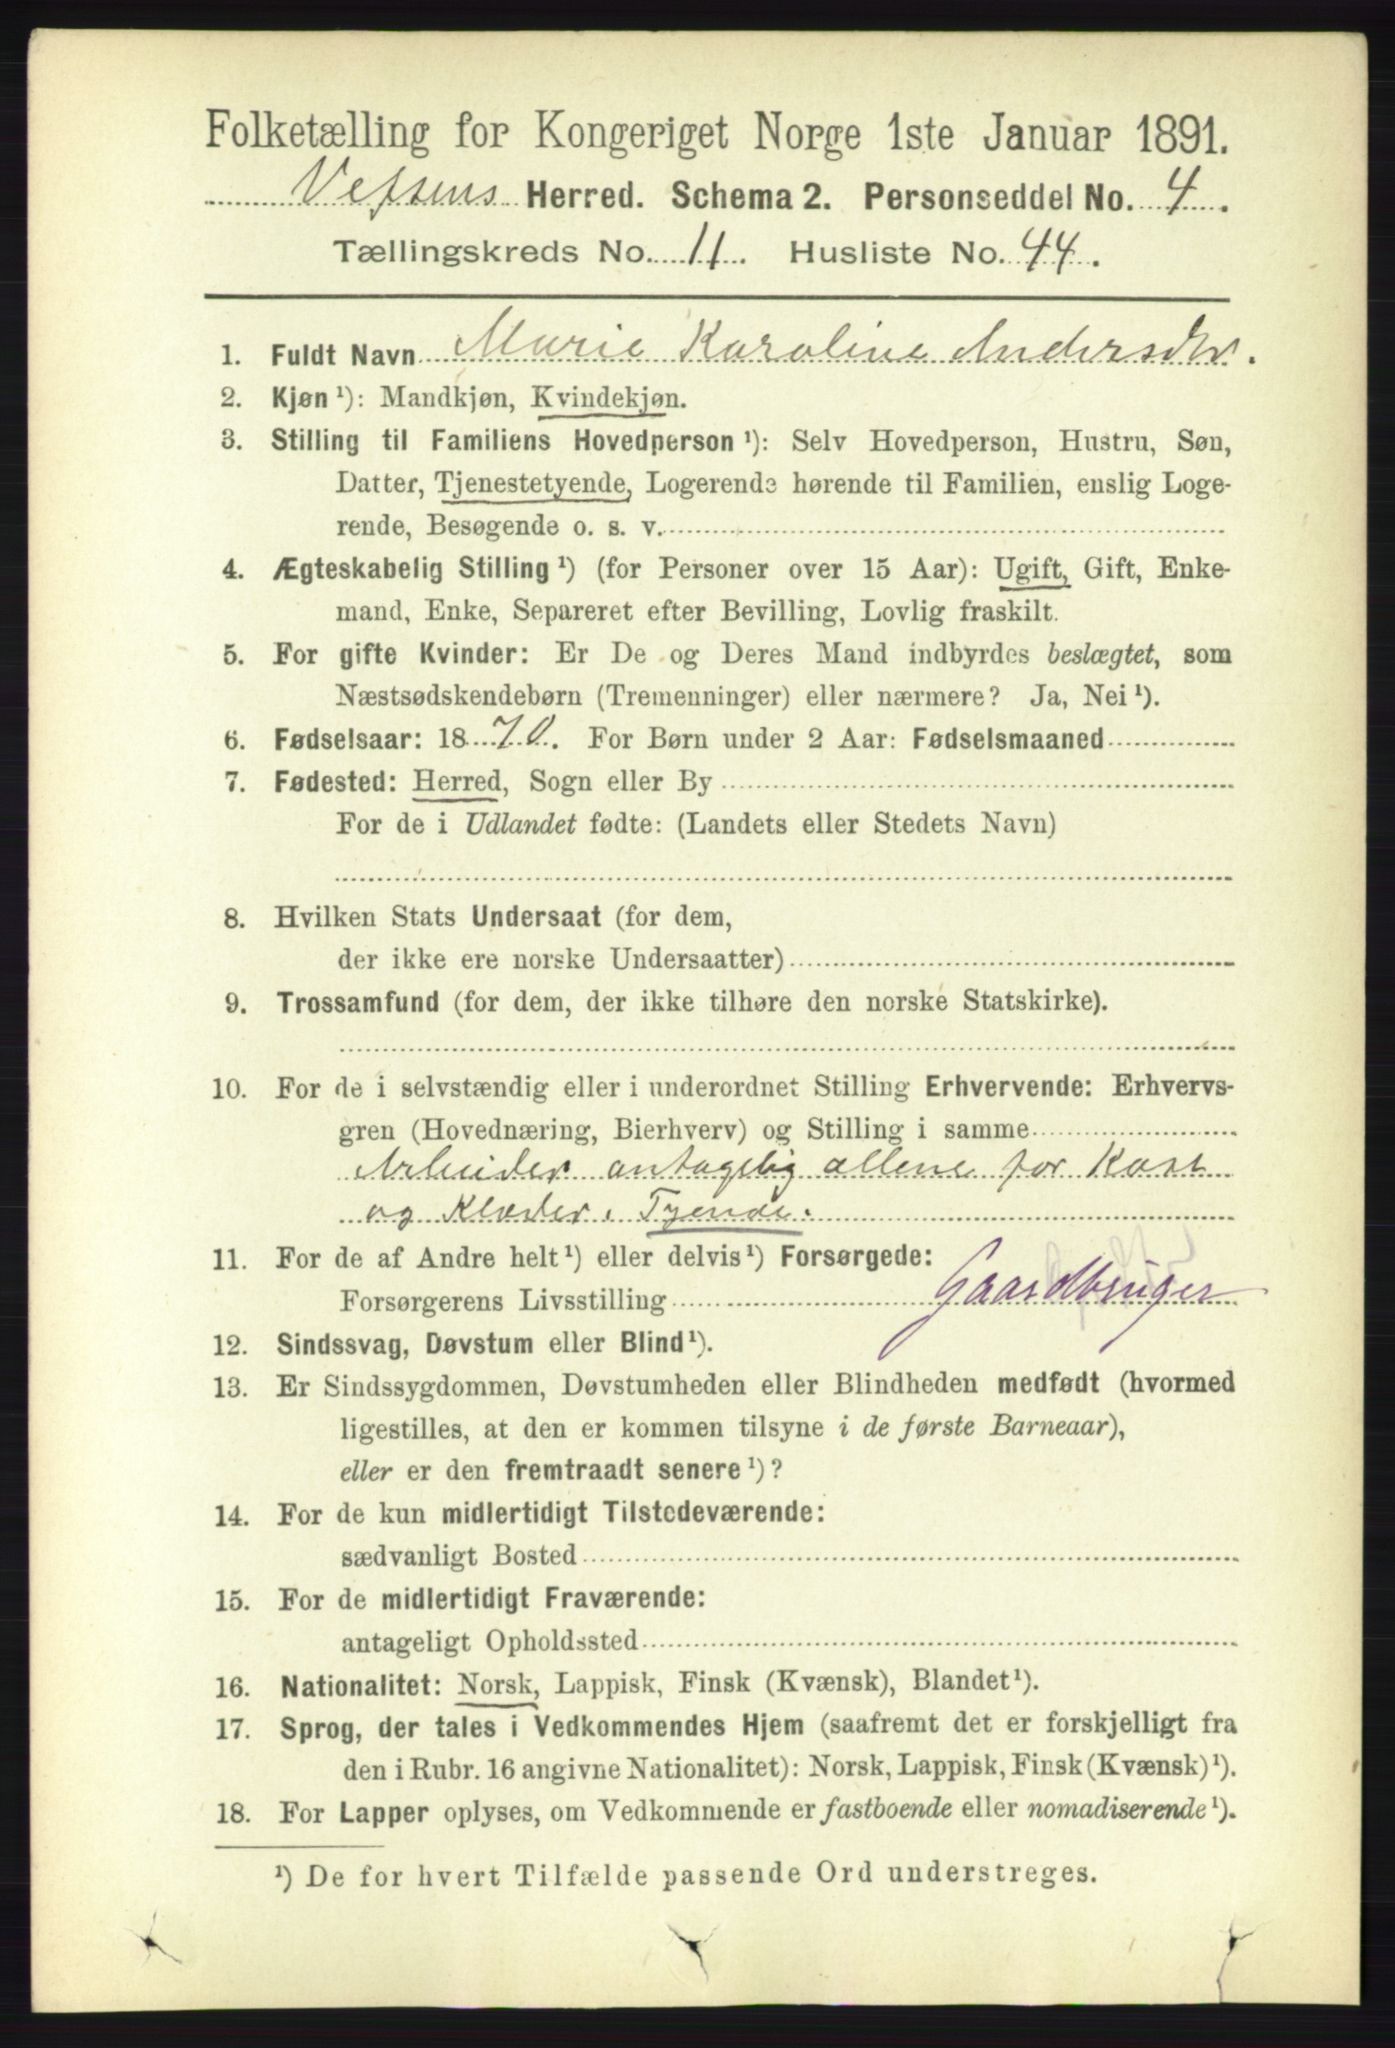 Folketælling for Kongeriget Norge 1ste Januar 1891.
Vefsens Herred. Schema 2. Personseddel No. 4.
Tællingskreds No. 11. Husliste No. 44.
1. Fuldt Navn Marie Karoline Andersdtr.
2. Kjøn ¹): Mandkjøn, Kvindekjøn.
3. Stilling til Familiens Hovedperson ¹): Selv Hovedperson, Hustru, Søn,
Datter, Tjenestetyende, Logerende hørende til Familien, enslig Loge-
rende, Besøgende o. s. v.
4. Ægteskabelig Stilling ¹) (for Personer over 15 Aar): Ugift, Gift, Enke-
mand, Enke, Separeret efter Bevilling, Lovlig fraskilt.
5. For gifte Kvinder: Er De og Deres Mand indbyrdes beslægtet, som
Næstsødskendebørn (Tremenninger) eller nærmere? Ja, Nei ¹).
6. Fødselsaar: 1870. For Børn under 2 Aar: Fødselsmaaned
7. Fødested: Herred, Sogn eller By
For de i Udlandet fødte: (Landets eller Stedets Navn)
8. Hvilken Stats Undersaat (for dem,
der ikke ere norske Undersaatter)
9. Trossamfund (for dem, der ikke tilhøre den norske Statskirke).
10. For de i selvstændig eller i underordnet Stilling Erhvervende: Erhvervs-
gren (Hovednæring, Bierhverv) og Stilling i samme
Arbeider antagelig allene for Kost
og Klæder. Tyende.
11. For de af Andre helt ¹) eller delvis ¹) Forsørgede:
Forsørgerens Livsstilling Gaardbruger
12. Sindssvag, Døvstum eller Blind ¹).
13. Er Sindssygdommen, Døvstumheden eller Blindheden medfødt (hvormed
ligestilles, at den er kommen tilsyne i de første Barneaar),
eller er den fremtraadt senere ¹)?
14. For de kun midlertidigt Tilstedeværende:
sædvanligt Bosted
15. For de midlertidigt Fraværende:
antageligt Opholdssted
16. Nationalitet: Norsk, Lappisk, Finsk (Kvænsk), Blandet ¹).
17. Sprog, der tales i Vedkommendes Hjem (saafremt det er forskjelligt fra
den i Rubr. 16 angivne Nationalitet): Norsk, Lappisk, Finsk (Kvænsk) ¹).
18. For Lapper oplyses, om Vedkommende er fastboende eller nomadiserende ¹).
¹) De for hvert Tilfælde passende Ord understreges.